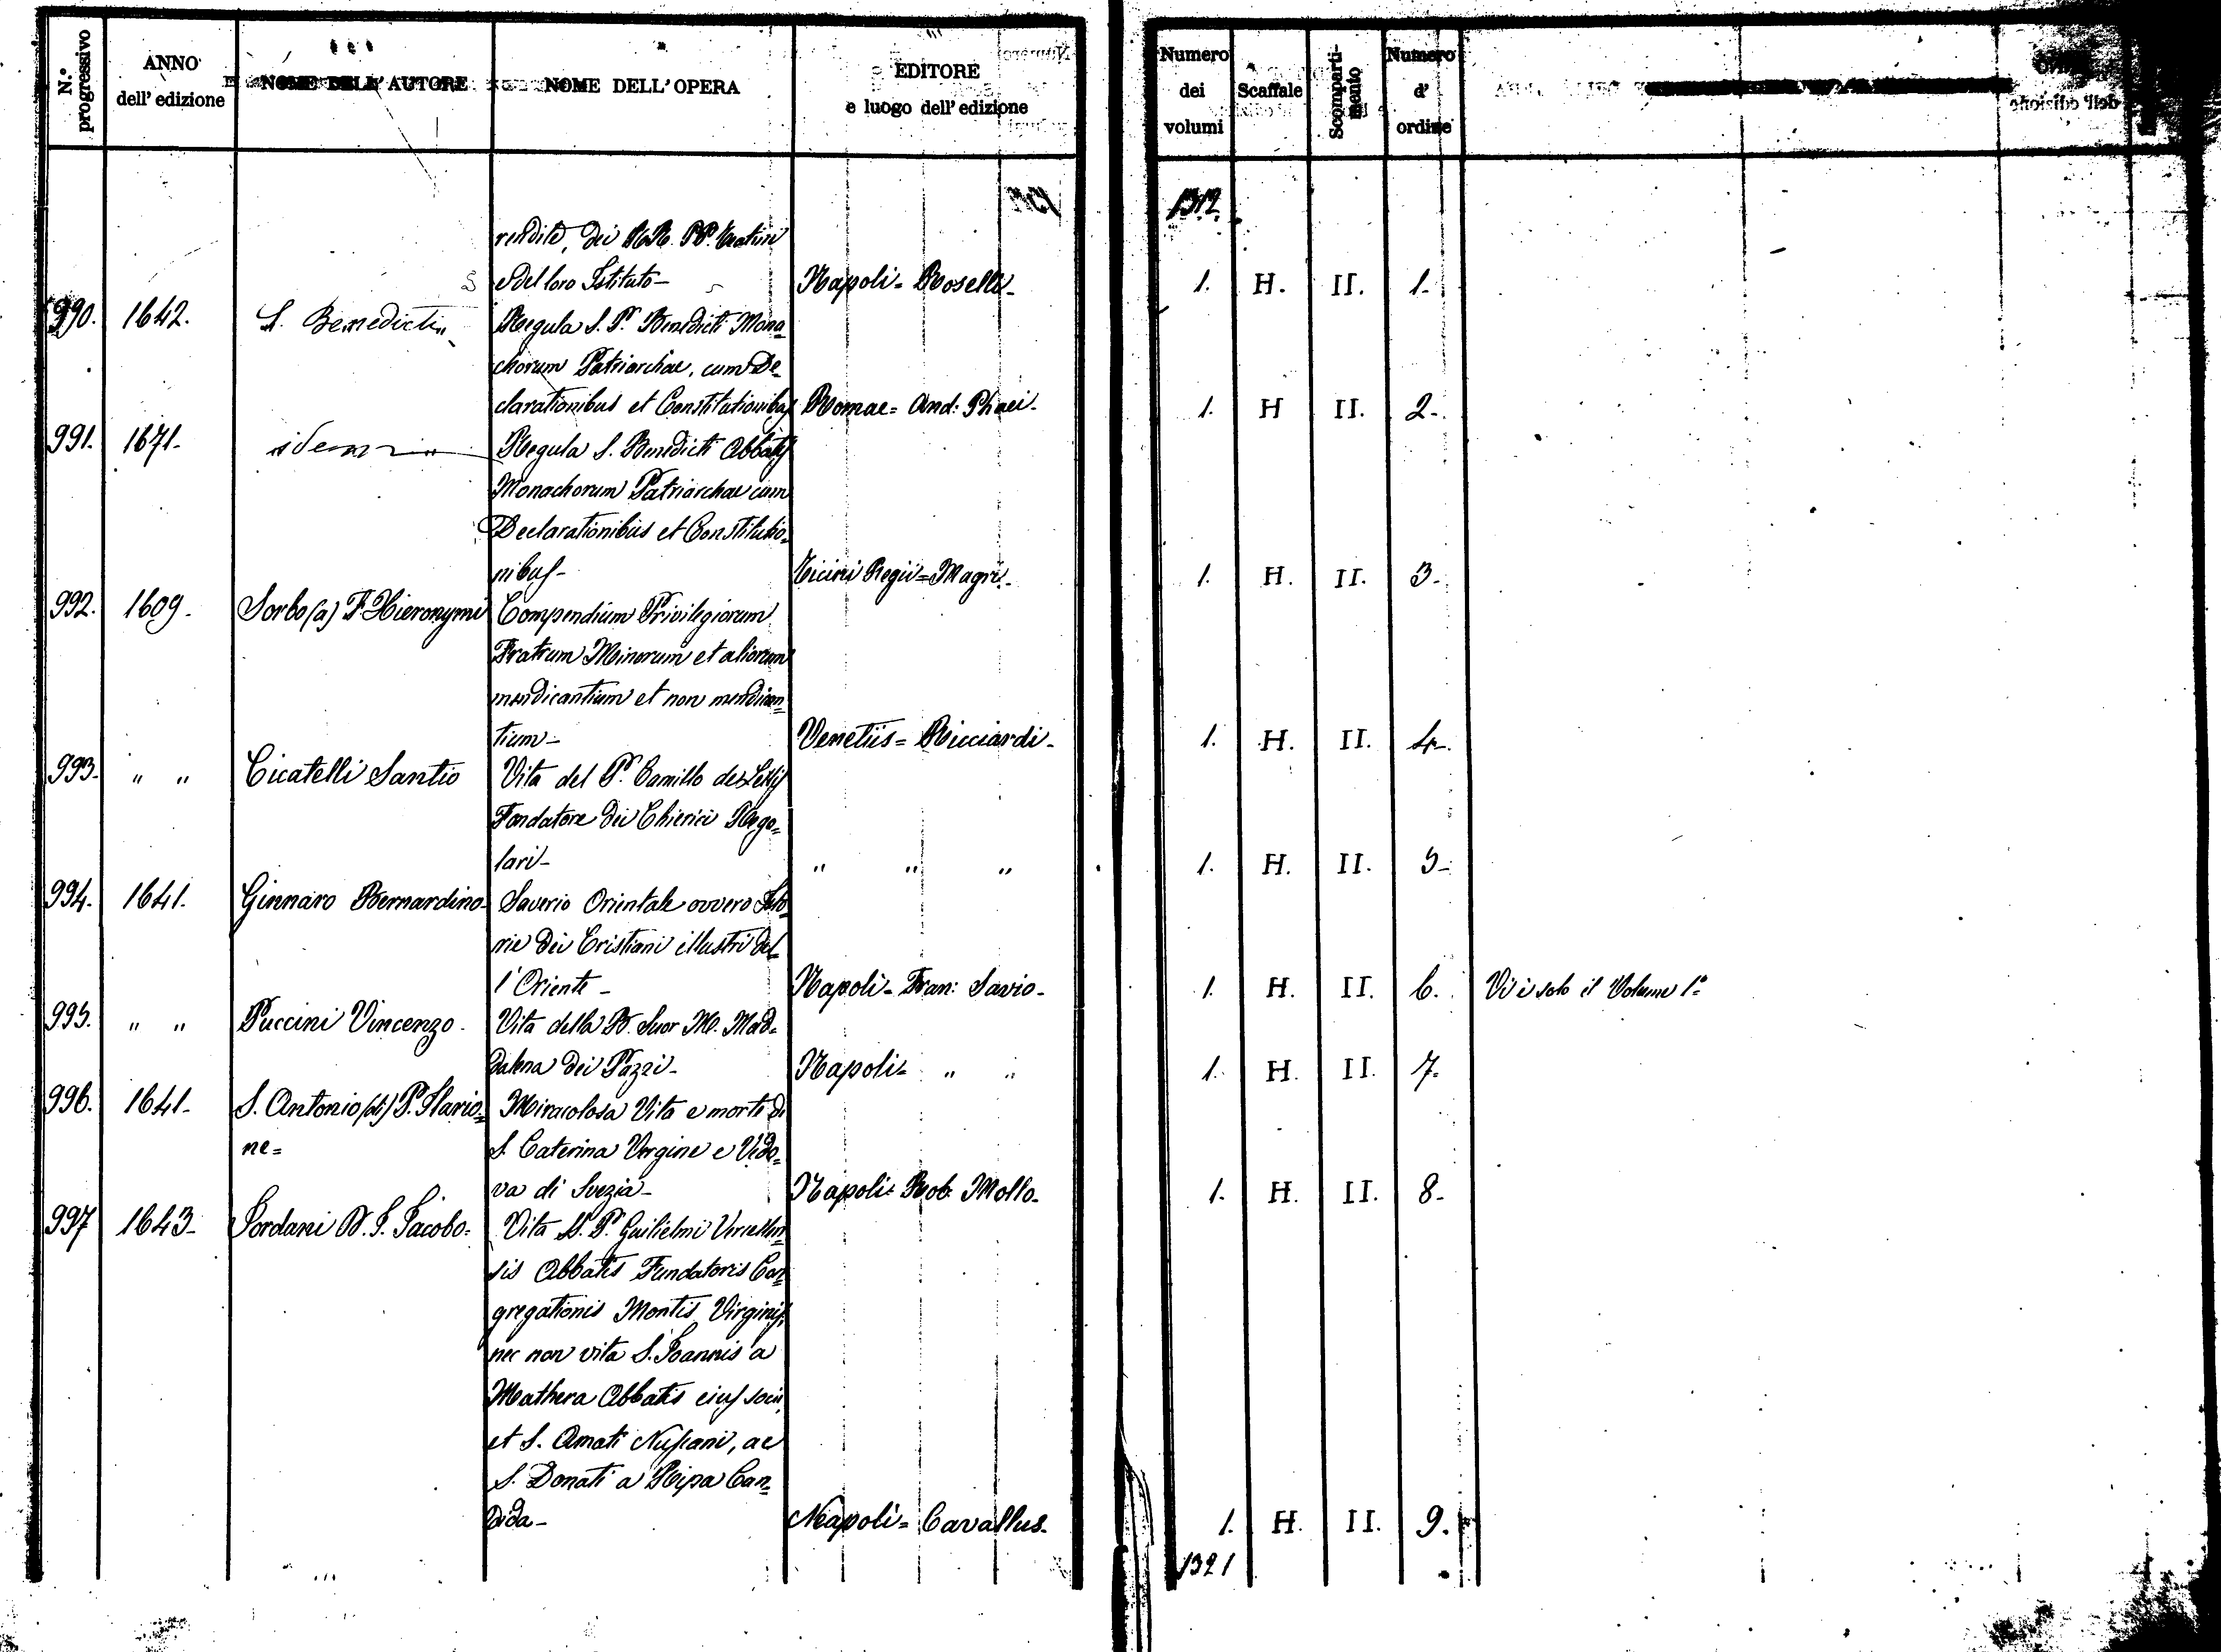 N.° progressivo
ANNO dell' edizione
NOME DELL' AUTORE
NOME DELL' OPERA
EDITORE e luogo dell' edizione
Numero dei volumi
Scaffale
Scomparti-mento
Numero d' ordine
1312
rendite, dei RR. PP. Teatini
e del loro Istituto- Napoli= Roselli- 1. H. II. 1.
990. 1642. S. Benedicti Regula S. P. Benedicti Mona=
chorum Patriarchae, cum De=
clarationibus et Constitutionibus Romae= And: Phaei- 1. H II. 2-
991. 1671- idem Regula S. Benedicti Abbatis
Monachorum Patriarchae cum
Declarationibus et Constitutio=
nibus- Ticini Regii= Magri- 1. H. II. 3-
992. 1609- Sorbo (a) F. Hieronymi Compendium Privilegiorum
Fratrum Minorum et aliorum
mendicantium et non mendican=
tium- Venetiis= Ricciardi- 1. H. II. 4-
993- " " Cicatelli Santio Vita del P. Camillo de Lellis
Fondatore dei Chierici Rego=
lari- " " " 1. H. II. 5-
994. 1641. Ginnaro Bernardino- Saverio Orientale ovvero Isto=
rie dei Cristiani illustri del=
l'Oriente- Napoli- Fran: Savio- 1. H. II. 6. Vi è solo il Volume 1.°
995. " " Puccini Vincenzo- Vita della B. Suor M. Mad=
dalena dei Pazzi- Napoli= " " 1. H. II. 7.
996. 1641- S. Antonio (di) P. Ilario= Miracolosa Vita e morte di
ne= S. Caterina Vergine e Vedo=
va di Svezia- Napoli= Rob: Mollo- 1. H. II. 8-
997 1643- Jordani D. J. Jacobo= Vita S. P. Guilielmi Vercellen=
sis Abbatis Fundatoris Con=
gregationis Montis Virginis,
nec non vita S. Joannis a
Mathera Abbatis eius socii,
et S. Amati Nuscani, ac
S. Donati a Ripa Can=
dida- Neapoli= Cavallus- 1. H. II. 9.
1321